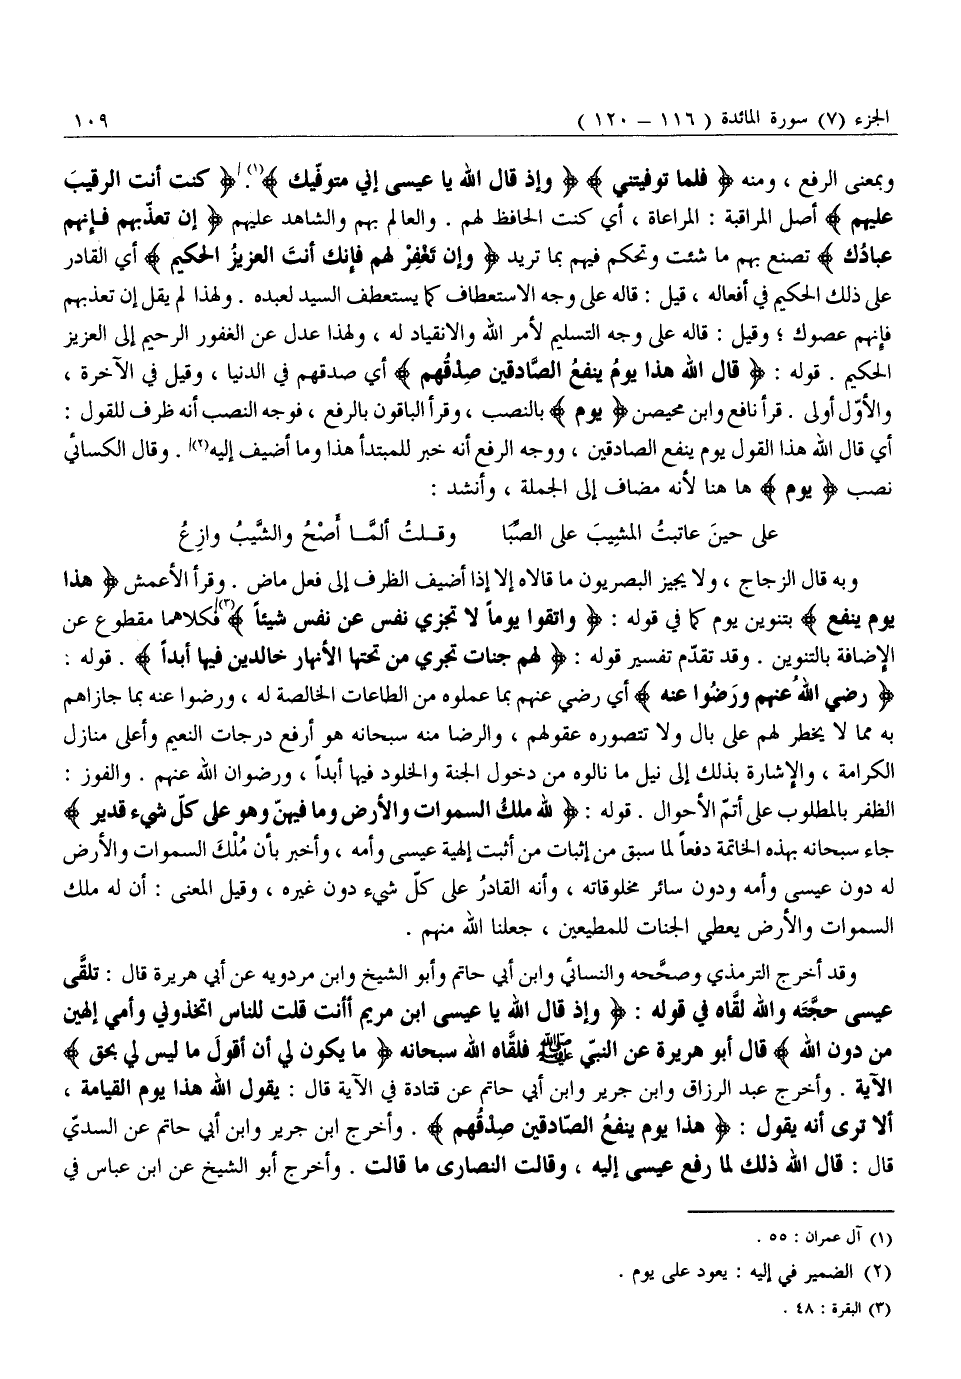 الجزء (٧) سورة المائدة ( ١١٦ – ١٢٠ ) ١٠٩
وبمعنى الرفع ، ومنه ﴿ فلما توفيتني ﴾ ﴿ وإذ قال الله يا عيسى إني متوفّيك ﴾(١). ﴿ كنت أنت الرقيبَ
عليهم ﴾ أصل المراقبة : المراعاة ، أي كنت الحافظ لهم . والعالم بهم والشاهد عليهم ﴿ إن تعذّبهم فإنهم
عبادُك ﴾ تصنع بهم ما شئت وتحكم فيهم بما تريد ﴿ وإن تَغْفِرْ لهم فإنك أنتَ العزيزُ الحكيم ﴾ أي القادر
على ذلك الحكيم في أفعاله ، قيل : قاله على وجه الاستعطاف كما يستعطف السيد لعبده . ولهذا لم يقل إن تعذبهم
فإنهم عصوك ؛ وقيل : قاله على وجه التسليم لأمر الله والانقياد له ، ولهذا عدل عن الغفور الرحيم إلى العزيز
الحكيم . قوله : ﴿ قال الله هذا يومُ ينفعُ الصَّادقين صِدْقُهم ﴾ أي صدقهم في الدنيا ، وقيل في الآخرة ،
والأوّل أولى . قرأ نافع وابن محيصن ﴿ يوم ﴾ بالنصب ، وقرأ الباقون بالرفع ، فوجه النصب أنه ظرف للقول :
أي قال الله هذا القول يوم ينفع الصادقين ، ووجه الرفع أنه خبر للمبتدأ هذا وما أضيف إليه(٢) . وقال الكسائي
نصب ﴿ يوم ﴾ ها هنا لأنه مضاف إلى الجملة ، وأنشد :
على حينَ عاتبتُ المشِيبَ على الصِّبَا وقلتُ ألمَّا أَصْحُ والشَّيبُ وازِعُ
وبه قال الزجاج ، ولا يجيز البصريون ما قالاه إلا إذا أضيف الظرف إلى فعل ماض . وقرأ الأعمش ﴿ هذا
يوم ينفع ﴾ بتنوين يوم كما في قوله : ﴿ واتقوا يوماً لا تجزي نفس عن نفس شيئاً ﴾(٣) فكلاهما مقطوع عن
الإضافة بالتنوين . وقد تقدّم تفسير قوله : ﴿ لهم جنات تجري من تحتها الأنهار خالدين فيها أبداً ﴾ . قوله :
﴿ رضي اللهُ عنهم ورَضُوا عنه ﴾ أي رضي عنهم بما عملوه من الطاعات الخالصة له ، ورضوا عنه بما جازاهم
به مما لا يخطر لهم على بال ولا تتصوره عقولهم ، والرضا منه سبحانه هو أرفع درجات النعيم وأعلى منازل
الكرامة ، والإشارة بذلك إلى نيل ما نالوه من دخول الجنة والخلود فيها أبداً ، ورضوان الله عنهم . والفوز :
الظفر بالمطلوب على أتمّ الأحوال . قوله : ﴿ لله ملكُ السموات والأرض وما فيهنّ وهو على كلّ شيء قدير ﴾
جاء سبحانه بهذه الخاتمة دفعاً لما سبق من إثبات من أثبت إلهية عيسى وأمه ، وأخبر بأن مُلْكَ السموات والأرض
له دون عيسى وأمه ودون سائر مخلوقاته ، وأنه القادرُ على كلّ شيء دون غيره ، وقيل المعنى : أن له ملك
السموات والأرض يعطي الجنات للمطيعين ، جعلنا الله منهم .
وقد أخرج الترمذي وصحَّحه والنسائي وابن أبي حاتم وأبو الشيخ وابن مردويه عن أبي هريرة قال : تلقَّى
عيسى حجَّتَه والله لقَّاه في قوله : ﴿ وإذ قال الله يا عيسى ابن مريم أأنت قلت للناس اتخذوني وأمي إلهين
من دون الله ﴾ قال أبو هريرة عن النبيّ ﷺ فلقَّاه الله سبحانه ﴿ ما يكون لي أن أقولَ ما ليس لي بحق ﴾
الآية . وأخرج عبد الرزاق وابن جرير وابن أبي حاتم عن قتادة في الآية قال : يقول الله هذا يوم القيامة ،
ألا ترى أنه يقول : ﴿ هذا يوم ينفعُ الصّادقين صِدْقُهم ﴾ . وأخرج ابن جرير وابن أبي حاتم عن السديّ
قال : قال الله ذلك لما رفع عيسى إليه ، وقالت النصارى ما قالت . وأخرج أبو الشيخ عن ابن عباس في
(١) آل عمران : ٥٥ .
(٢) الضمير في إليه : يعود على يوم .
(٣) البقرة : ٤٨ .